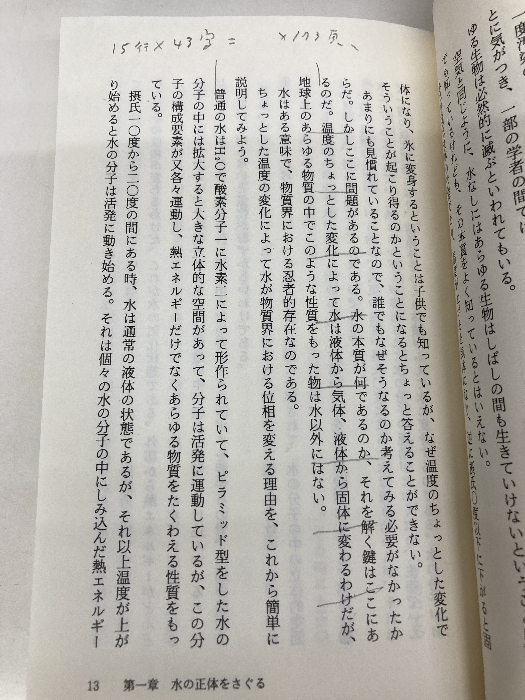 一部の学者の間では
とに気がつき、
ゆる生物は必然的に滅ぶといわれてもいる。
空気と同じように、水なしにはあらゆる生物はしばしの間も生きていけないという
15行×43字＝　×173頁
体になり、氷に変身するということは子供でも知っているが、なぜ温度のちょっとした変化で
そういうことが起こり得るのかということになるとちょっと答えることができない。
あまりにも見慣れていることなので、誰でもなぜそうなるのか考えてみる必要がなかったか
らだ。しかしここに問題があるのである。水の本質が何であるのか、それを解く鍵はここにあ
るのだ。温度のちょっとした変化によって水は液体から気体、液体から固体に変わるわけだが、
地球上のあらゆる物質の中でこのような性質をもった物は水以外にはない。
水はある意味で、物質界における忍者的存在なのである。
ちょっとした温度の変化によって水が物質界における位相を変える理由を、これから簡単に
説明してみよう。
普通の水はH₂Oで酸素分子一に水素二によって形作られていて、ピラミッド型をした水の
分子の中には拡大すると大きな立体的な空間があって、分子は活発に運動しているが、この分
子の構成要素が又各々運動し、熱エネルギーだけでなくあらゆる物質をたくわえる性質をもっ
ている。
摂氏一〇度から二〇度の間にある時、水は通常の液体の状態であるが、それ以上温度が上が
り始めると水の分子は活発に動き始める。それは個々の水の分子の中にしみ込んだ熱エネルギー
13　第一章　水の正体をさぐる